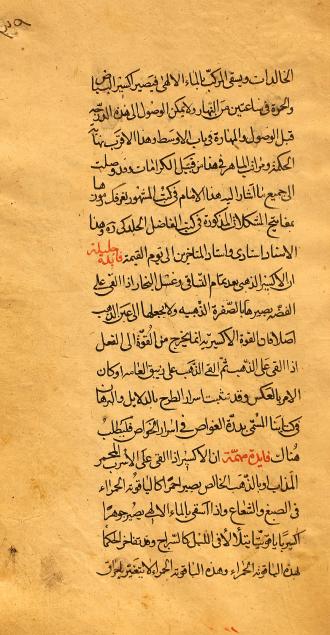 ٣٩
الخالدات ويسقى المركب بالماء الالهى فيصير اكسير البياض
والحمرة فى ساعتين من النهار ولا يمكن الوصول الى هذه الدرجة
قبل الوصول والمهارة فى باب الاوسط وهذا الاقرب
الحكمة ومن اتى الماهر فى هذا من قبيل الكرامات وقد وصلت
الى جميع ما اشار اليه هذا الامام فى كتبه المشهور
بمفاتيح المشكلات المذكورة فى كتب الفاضل الجلدكى وهذا
الاسناد استادى واستاد المتاخرين الى يوم القيمة فائدة جليلة
ان الاكسير الذهبى بعد تمام التساقى وغسل البخار اذا القى على
الفضة يصيرها بالصفرة الذهبية ولا يجعلها الى عين الذهب
اصلا فان القوة الاكسيرية انما يخرج من القوة الى الفعل
اذا القى على الذهب ثم القى الذهب على زيبق العامه او كان
الامر بالعكس وقد بينت اسرار الطرح بالدلايل والبرهان
فى كتابنا المسمى بدرة الغواص فى اسرار الخواص فليطلب
هناك فايدة مهمة ان الاكسير اذا القى على الاسرب المحمر
المذاب او بالذهب الخالص يصير احمرا كالياقوتة الحمراء
فى الصبغ والشعاع واذا اسقى بالماء الالهى يصير جوهرا
اكسيريا ياقوتيا يتلألأ فى الليل كالسراج وقد تفاخر الحكما
لهذه الياقوتة الحمراء وهذه الياقوتة الحمراء لا يتغير